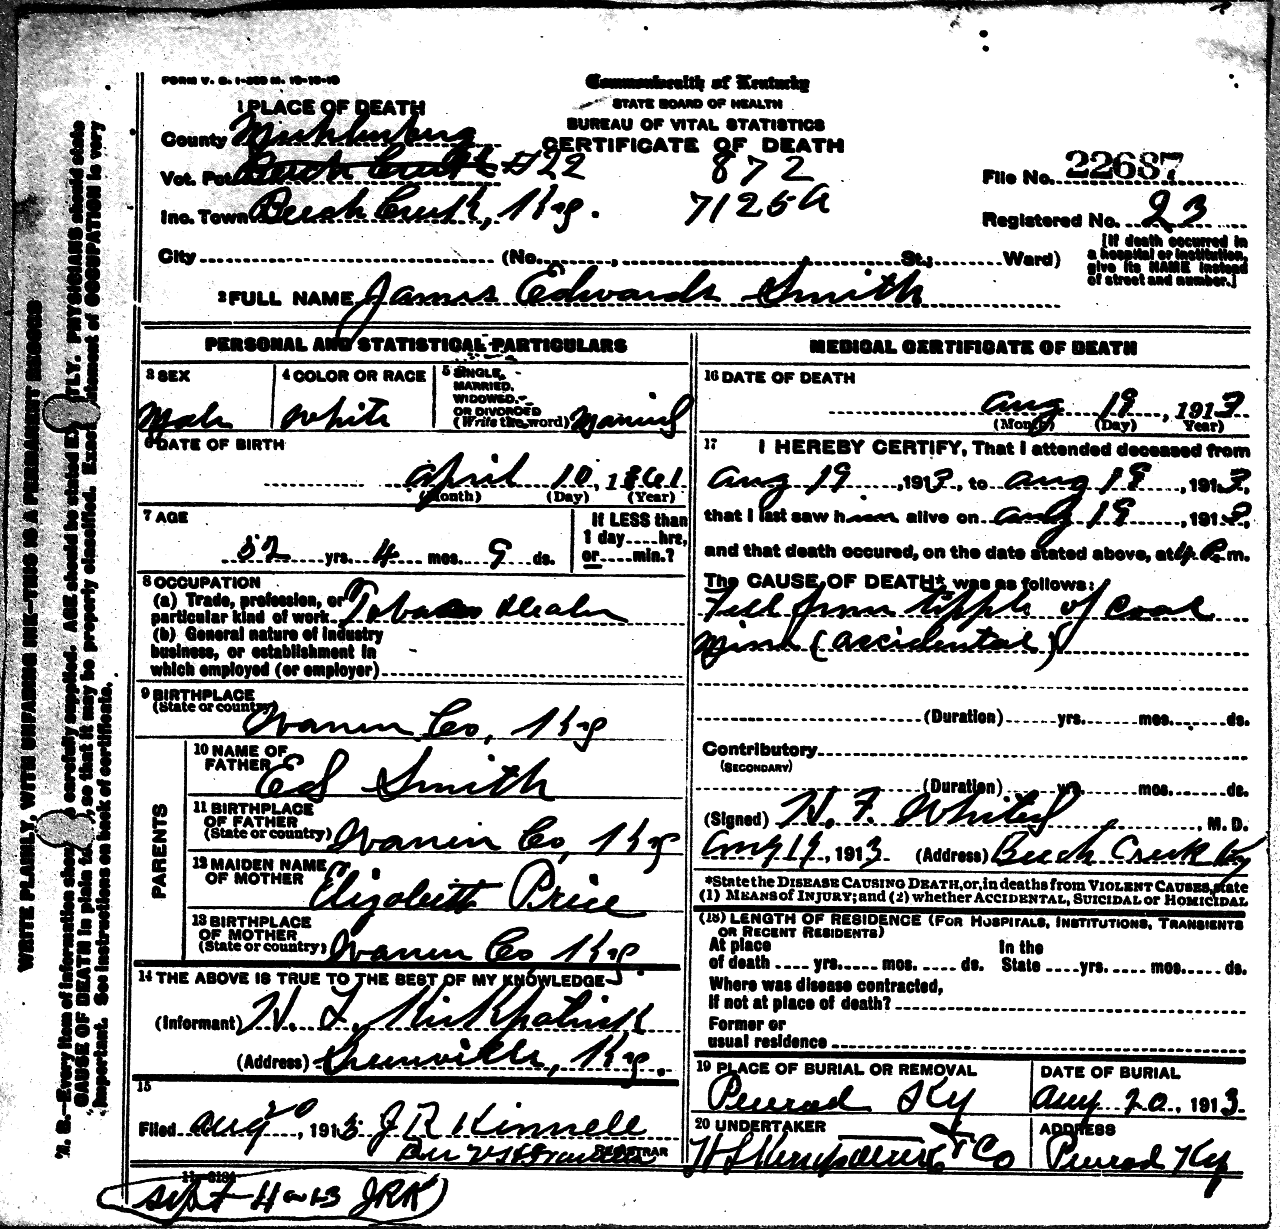 FORM V. S. 1-
Commonwealth of Kentucky
STATE BOARD OF HEALTH
BUREAU OF VITAL STATISTICS
CERTIFICATE OF DEATH
1 PLACE OF DEATH
County Muhlenberg
Vot. Pct. Beech Creek #22
872
File No. 22687
Inc. Town Beech Creek, Ky.
7125a
Registered No. 23
City (No. , St.; Ward)
[If death occurred in a hospital or institution, give its NAME instead of street and number.]
2 FULL NAME James Edwards Smith
PERSONAL AND STATISTICAL PARTICULARS
3 SEX
Male
4 COLOR OR RACE
White
5 SINGLE, MARRIED, WIDOWED, OR DIVORCED
(Write the word) Married
6 DATE OF BIRTH
April 10, 1861
(Month) (Day) (Year)
7 AGE
52 yrs. 4 mos. 9 ds.
If LESS than 1 day hrs, or min.?
8 OCCUPATION
(a) Trade, profession, or particular kind of work Tobacco Dealer
(b) General nature of industry business, or establishment in which employed (or employer)
9 BIRTHPLACE
(State or country) Warren Co, Ky
PARENTS
10 NAME OF FATHER Ed Smith
11 BIRTHPLACE OF FATHER
(State or country) Warren Co, Ky
12 MAIDEN NAME OF MOTHER Elizabeth Price
13 BIRTHPLACE OF MOTHER
(State or country) Warren Co Ky
14 THE ABOVE IS TRUE TO THE BEST OF MY KNOWLEDGE
(Informant) Kirkpatrick
(Address) Greenville, Ky.
15
Filed Aug 20, 1913 J R Kinnell
REGISTRAR
MEDICAL CERTIFICATE OF DEATH
16 DATE OF DEATH
Aug 19, 1913
(Month) (Day) (Year)
17 I HEREBY CERTIFY, That I attended deceased from
Aug 19, 1913, to Aug 19, 1913,
that I last saw him alive on Aug 19, 1913,
and that death occured, on the date stated above, at 4 P. m.
The CAUSE OF DEATH* was as follows:
Fell from tipple of coal
mine (accidental)
(Duration) yrs. mos. ds.
Contributory
(SECONDARY)
(Duration) yrs. mos. ds.
(Signed) H. F. , M. D.
Aug 19, 1913 (Address) Beech Creek Ky
*State the DISEASE CAUSING DEATH, or, in deaths from VIOLENT CAUSES, state
(1) MEANS of INJURY; and (2) whether ACCIDENTAL, SUICIDAL or HOMICIDAL
(18) LENGTH OF RESIDENCE (FOR HOSPITALS, INSTITUTIONS, TRANSIENTS OR RECENT RESIDENTS)
At place of death yrs. mos. ds. In the State yrs. mos. ds.
Where was disease contracted,
if not at place of death?
Former or
usual residence
19 PLACE OF BURIAL OR REMOVAL
Penrod Ky
DATE OF BURIAL
Aug 20, 1913
20 UNDERTAKER
& Co
ADDRESS
Penrod Ky
Sept 4 JRK
WRITE PLAINLY, WITH UNFADING INK—THIS IS A PERMANENT RECORD
N. B.—Every item of information should be carefully supplied. AGE should be stated EXACTLY. PHYSICIANS should state
CAUSE OF DEATH in plain terms, so that it may be properly classified. Exact statement of OCCUPATION is very
important. See instructions on back of certificate.